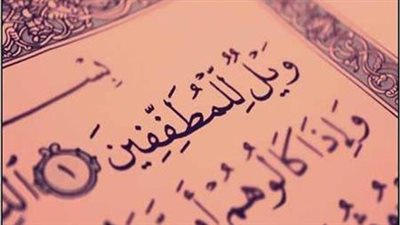 وَيْلٌ لِّلْمُطَفِّفِينَ ١
وَإِذَا كَالُوهُمْ